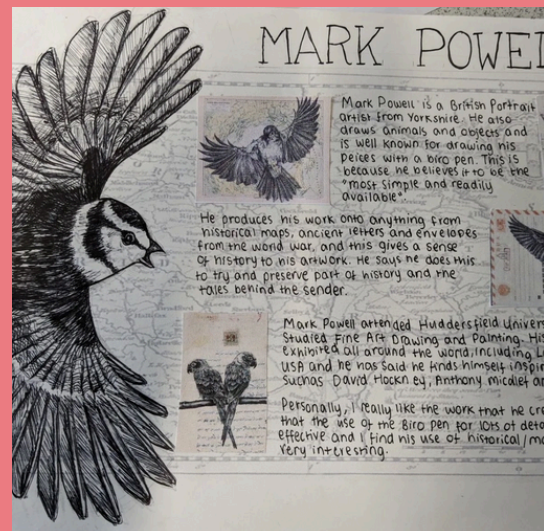 MARK POWEL
Mark Powell is a British Portrait
artist from Yorkshire. He also
draws animals and objects and
is well known for drawing his
peices with a biro pen. This is
because he believes it to be the
"most simple and readily
available".
He produces his work onto anything from
historical maps, ancient letters and envelopes
from the world war, and this gives a sense
of history to his artwork. He says he does this
to try and preserve part of history and the
tales behind the sender.
Mark Powell attended Huddersfield Univers
Studied Fine Art Drawing and Painting. His
exhibited all around the world, including L
USA and he has said he finds himself inspir
such as David Hockney, Anthony micallef ar
Personally, I really like the work that he cre
that the use of the Biro pen for lots of deta
effective and I find his use of historical/ma
very interesting.